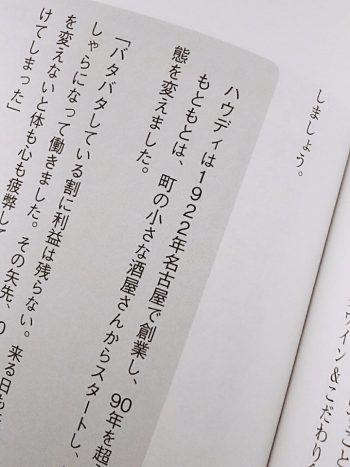 イン＆こだわり
しましょう。
ハウディは1922年名古屋で創業し、90年を超
もともとは、町の小さな酒屋さんからスタートし、
態を変えました。
「バタバタしている割に利益は残らない。来る日も
しゃらになって働きました。その矢先、
を変えないと体も心も疲弊して
けてしまった」